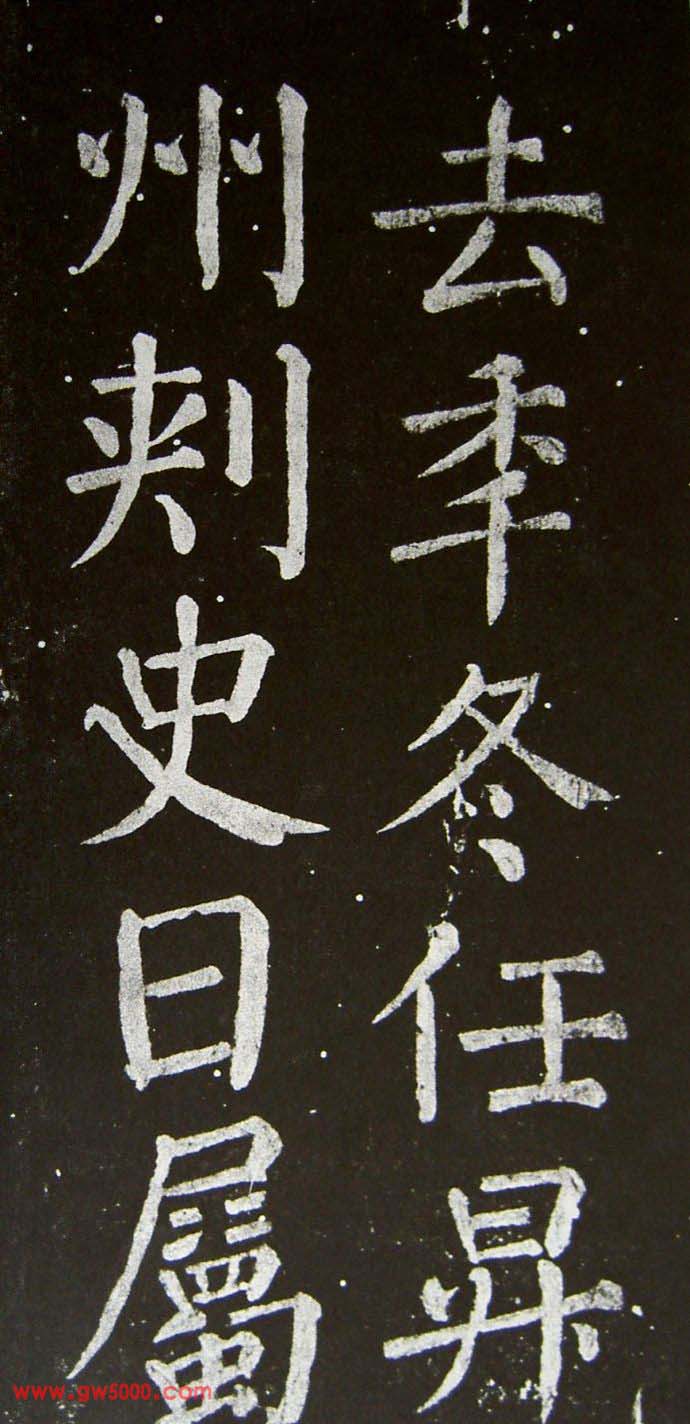 去秊冬任昇
州刾史日屬
www.gw5000.com